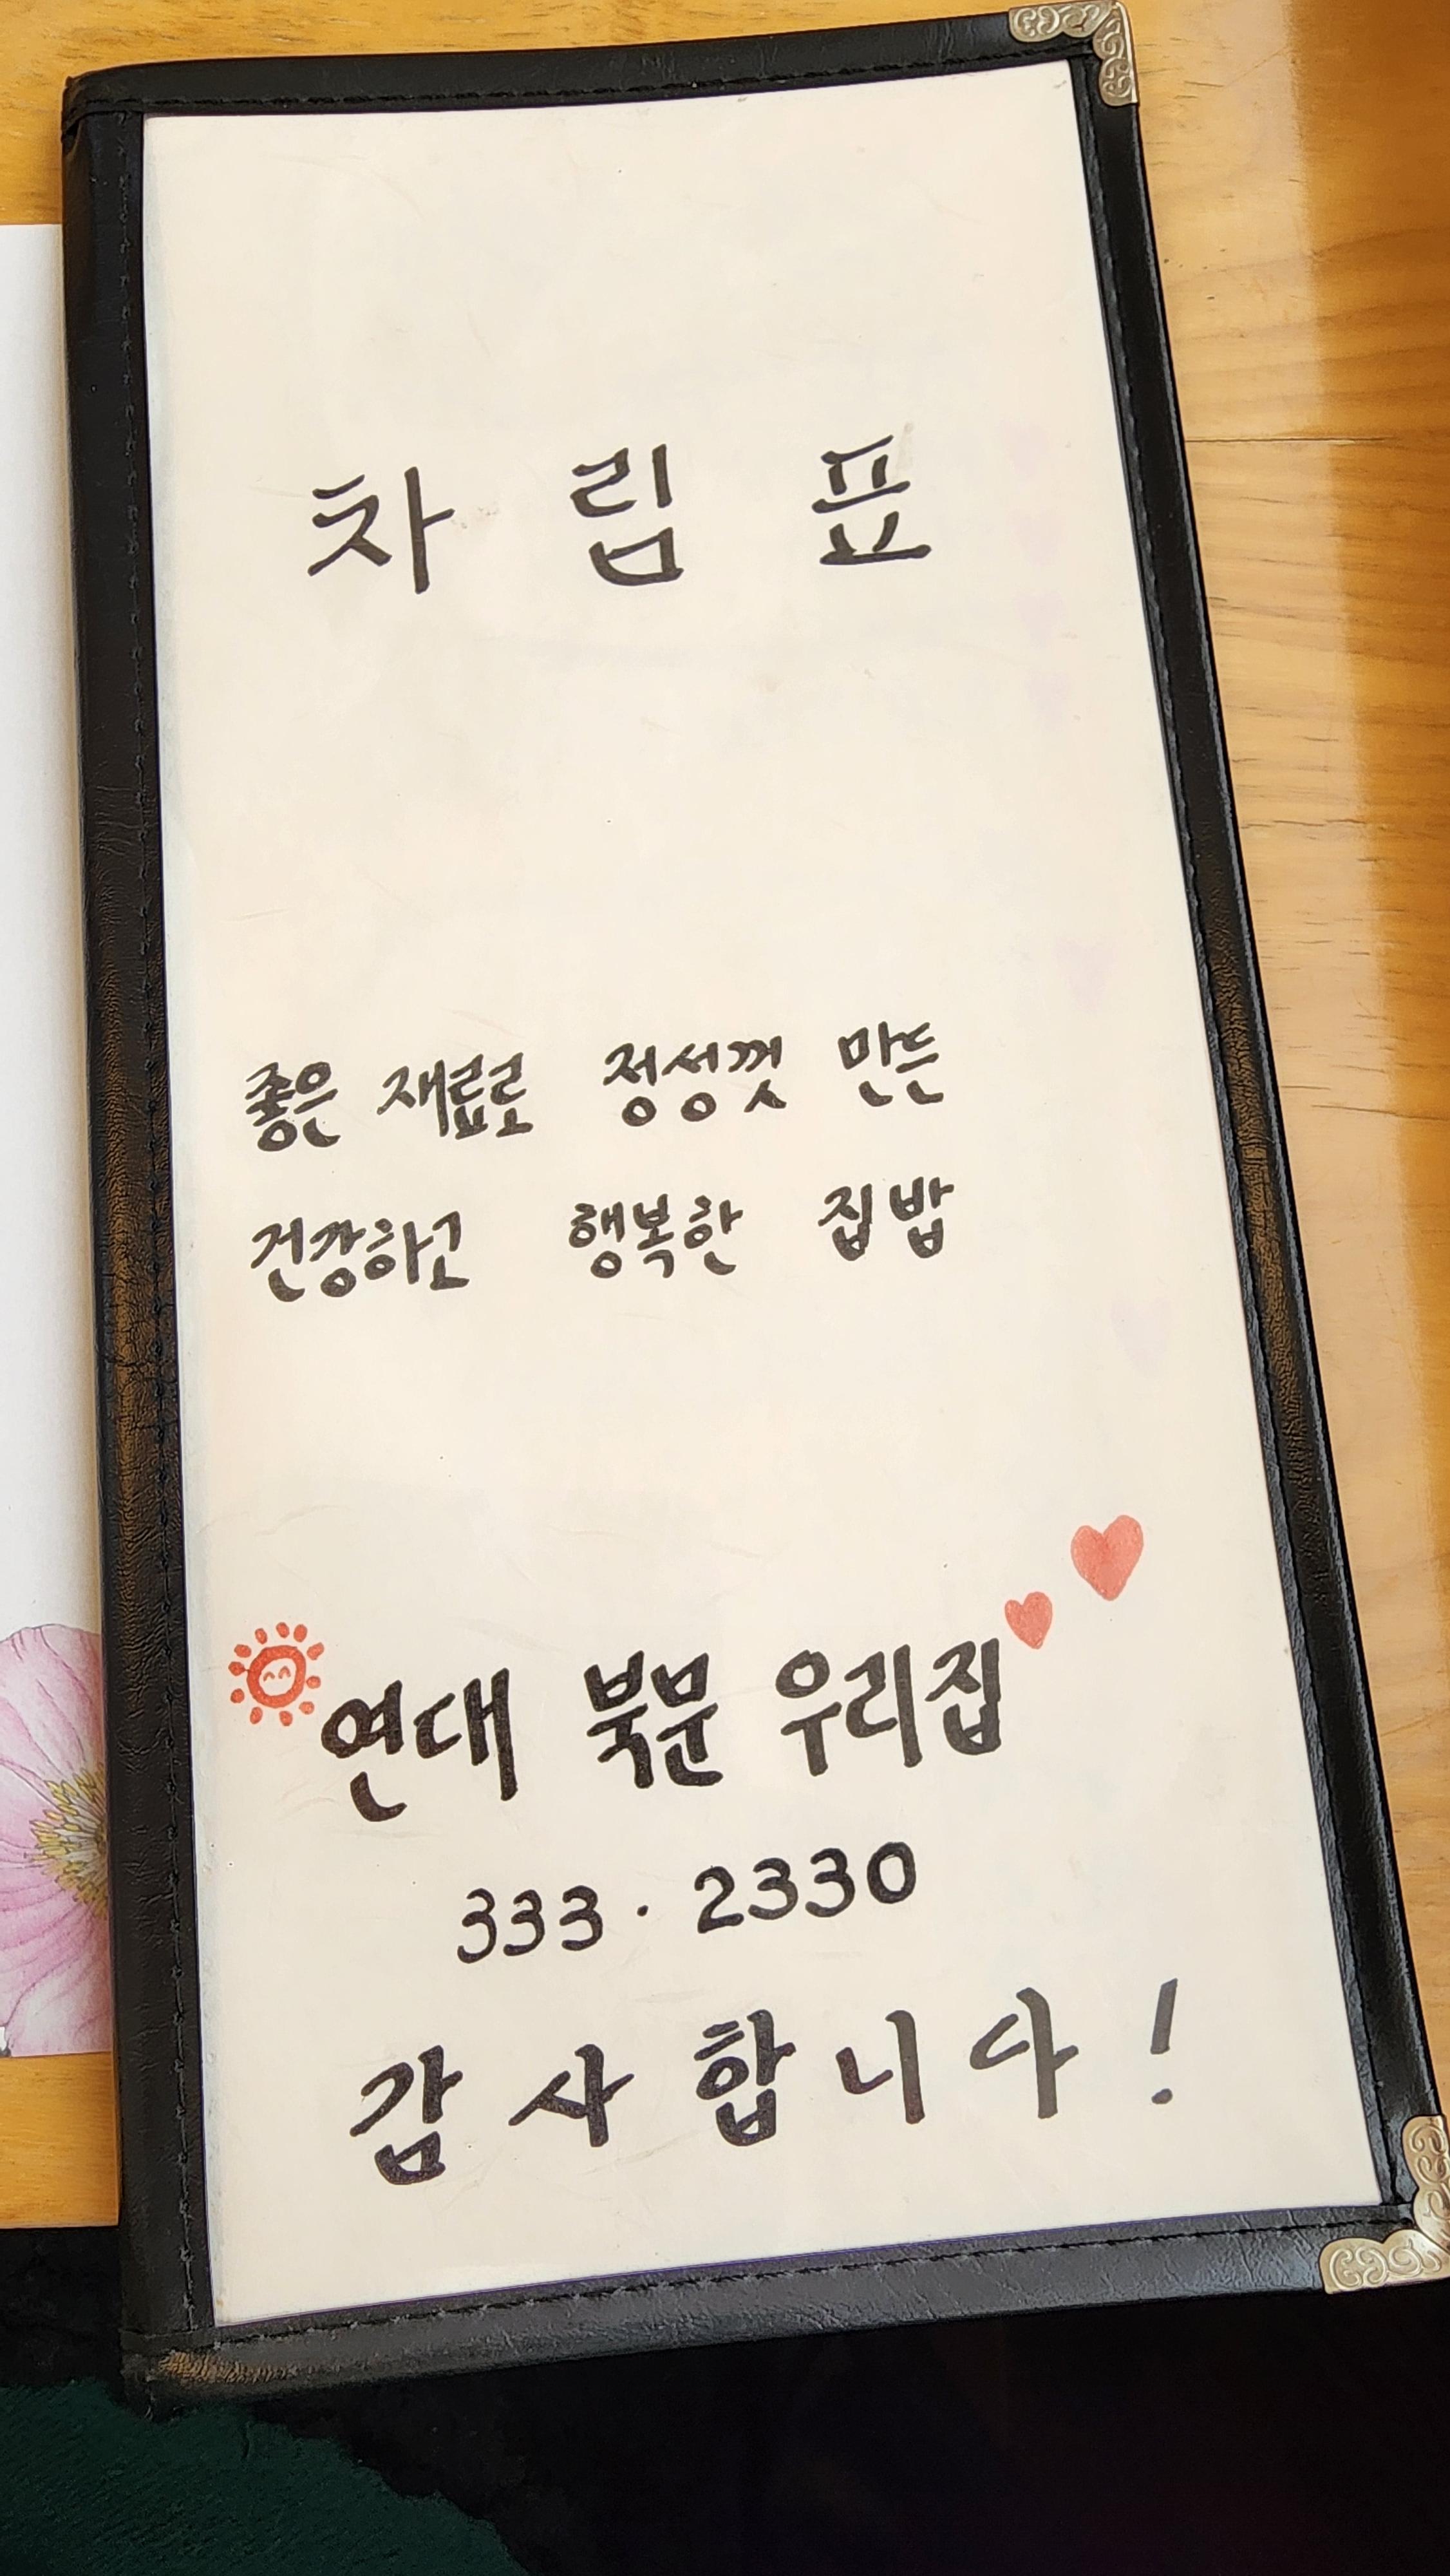 차림표
좋은 재료로 정성껏 만든
건강하고 행복한 집밥
연대 북문 우리집
333·2330
감사합니다!